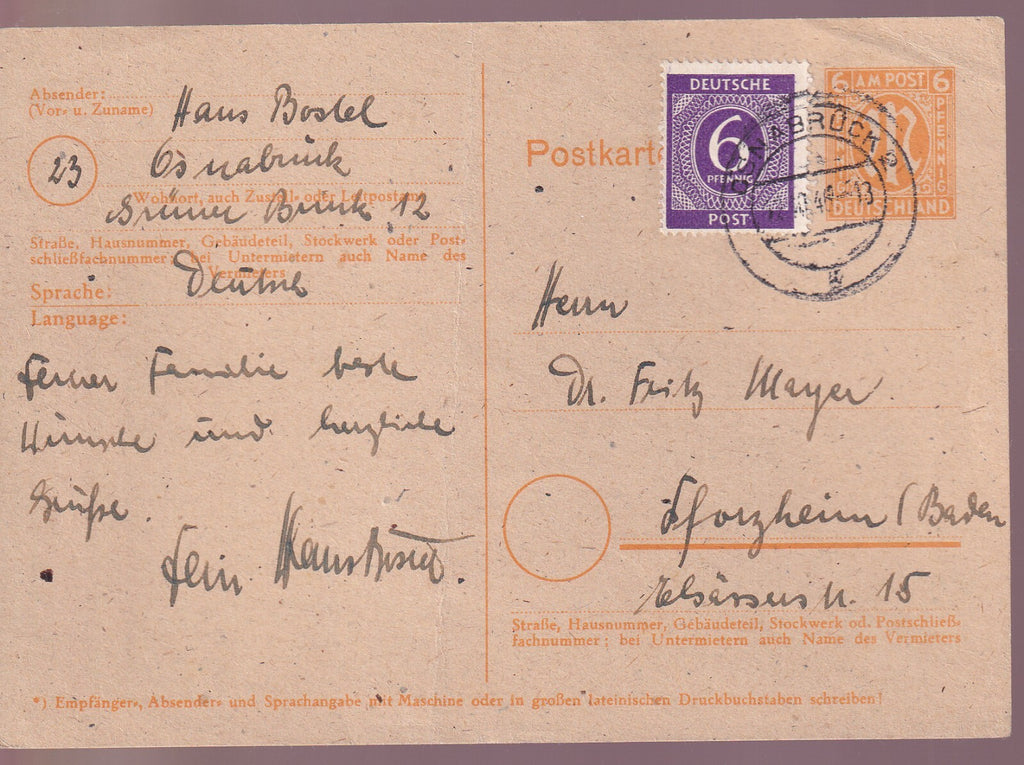 Absender:
(Vor- u. Zuname)
Hans Bostel
23
Osnabrück
Wohnort, auch Zustell- oder Leitpostamt
Grüner Brink 12
Straße, Hausnummer, Gebäudeteil, Stockwerk oder Post-
schließfachnummer; bei Untermietern auch Name des
Vermieters
Sprache:
Deutsch
Language:
Ferner Familie beste
Wünsche und herzliche
Grüße.
Hans Bostel.
Postkarte
DEUTSCHE
6
PFENNIG
POST
6 AM POST 6
PFENNIG
DEUTSCHLAND
OSNABRÜCK 2
Herrn
Dr. Fritz Mayer.
Pforzheim (Baden
Elsässerstr. 15
Straße, Hausnummer, Gebäudeteil, Stockwerk od. Postschließ-
fachnummer; bei Untermietern auch Name des Vermieters
*) Empfänger-, Absender- und Sprachangabe mit Maschine oder in großen lateinischen Druckbuchstaben schreiben!